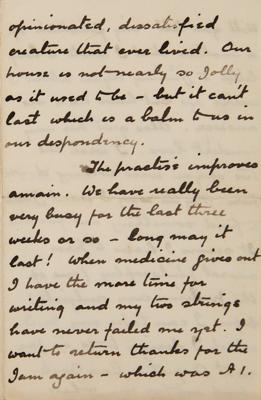 opinionated, dissatisfied
creature that ever lived. Our
house is not nearly so Jolly
as it used to be – but it can't
last which is a balm to us in
our despondency.
The practise improves
amain. We have really been
very busy for the last three
weeks or so – long may it
last! When medicine gives out
I have the more time for
writing and my two strings
have never failed me yet. I
want to return thanks for the
Jam again – which was A1.